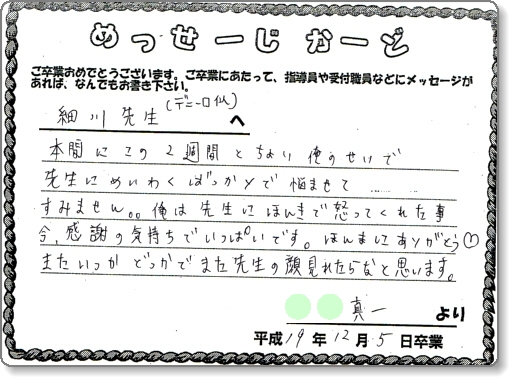 めっせーじかーど
ご卒業おめでとうございます。ご卒業にあたって、指導員や受付職員などにメッセージが
あれば、なんでもお書き下さい。
細川先生(デニーロ似)へ
本間にこの2週間とちょい俺のせいで
先生にめいわくばっかかで悩ませて……
すみません。。俺は先生にほんきで怒ってくれた事
今、感謝の気持ちでいっぱいです。ほんまにありがとう
またいつかどっかでまた先生の顔見れたらなと思います。
真一より
平成19年12月5日卒業